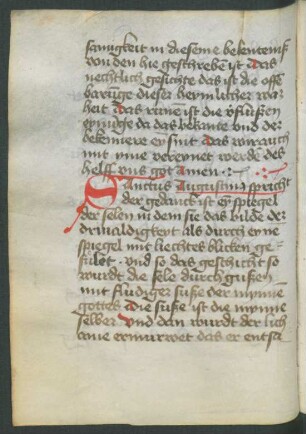 samigkeit in dieseme bekenteniß
von den hie geschreben ist das
nechtlich gesichte das ist die offē
barūge dieser heymlicher war
heit das runen ist die vßflußen
eynunge da das bekante vnd der
bekenner eyn sint das wir auch
mit yme vereynet werdē des
helff vns got Amen
Sanctus Augustinus spricht
der gedanck ist eyn spiegel
der selen in dem sie das bilde der
drinaldigkeyt als durch eyne
spiegel mit liechtes blicken ge
fulet · vnd so das geschicht so
wurdt die sele durch gußen
mit flußiger suße der mynne
gottes die suße ist die mynne
selber vnd dan wurdt der lich
name das er entsa